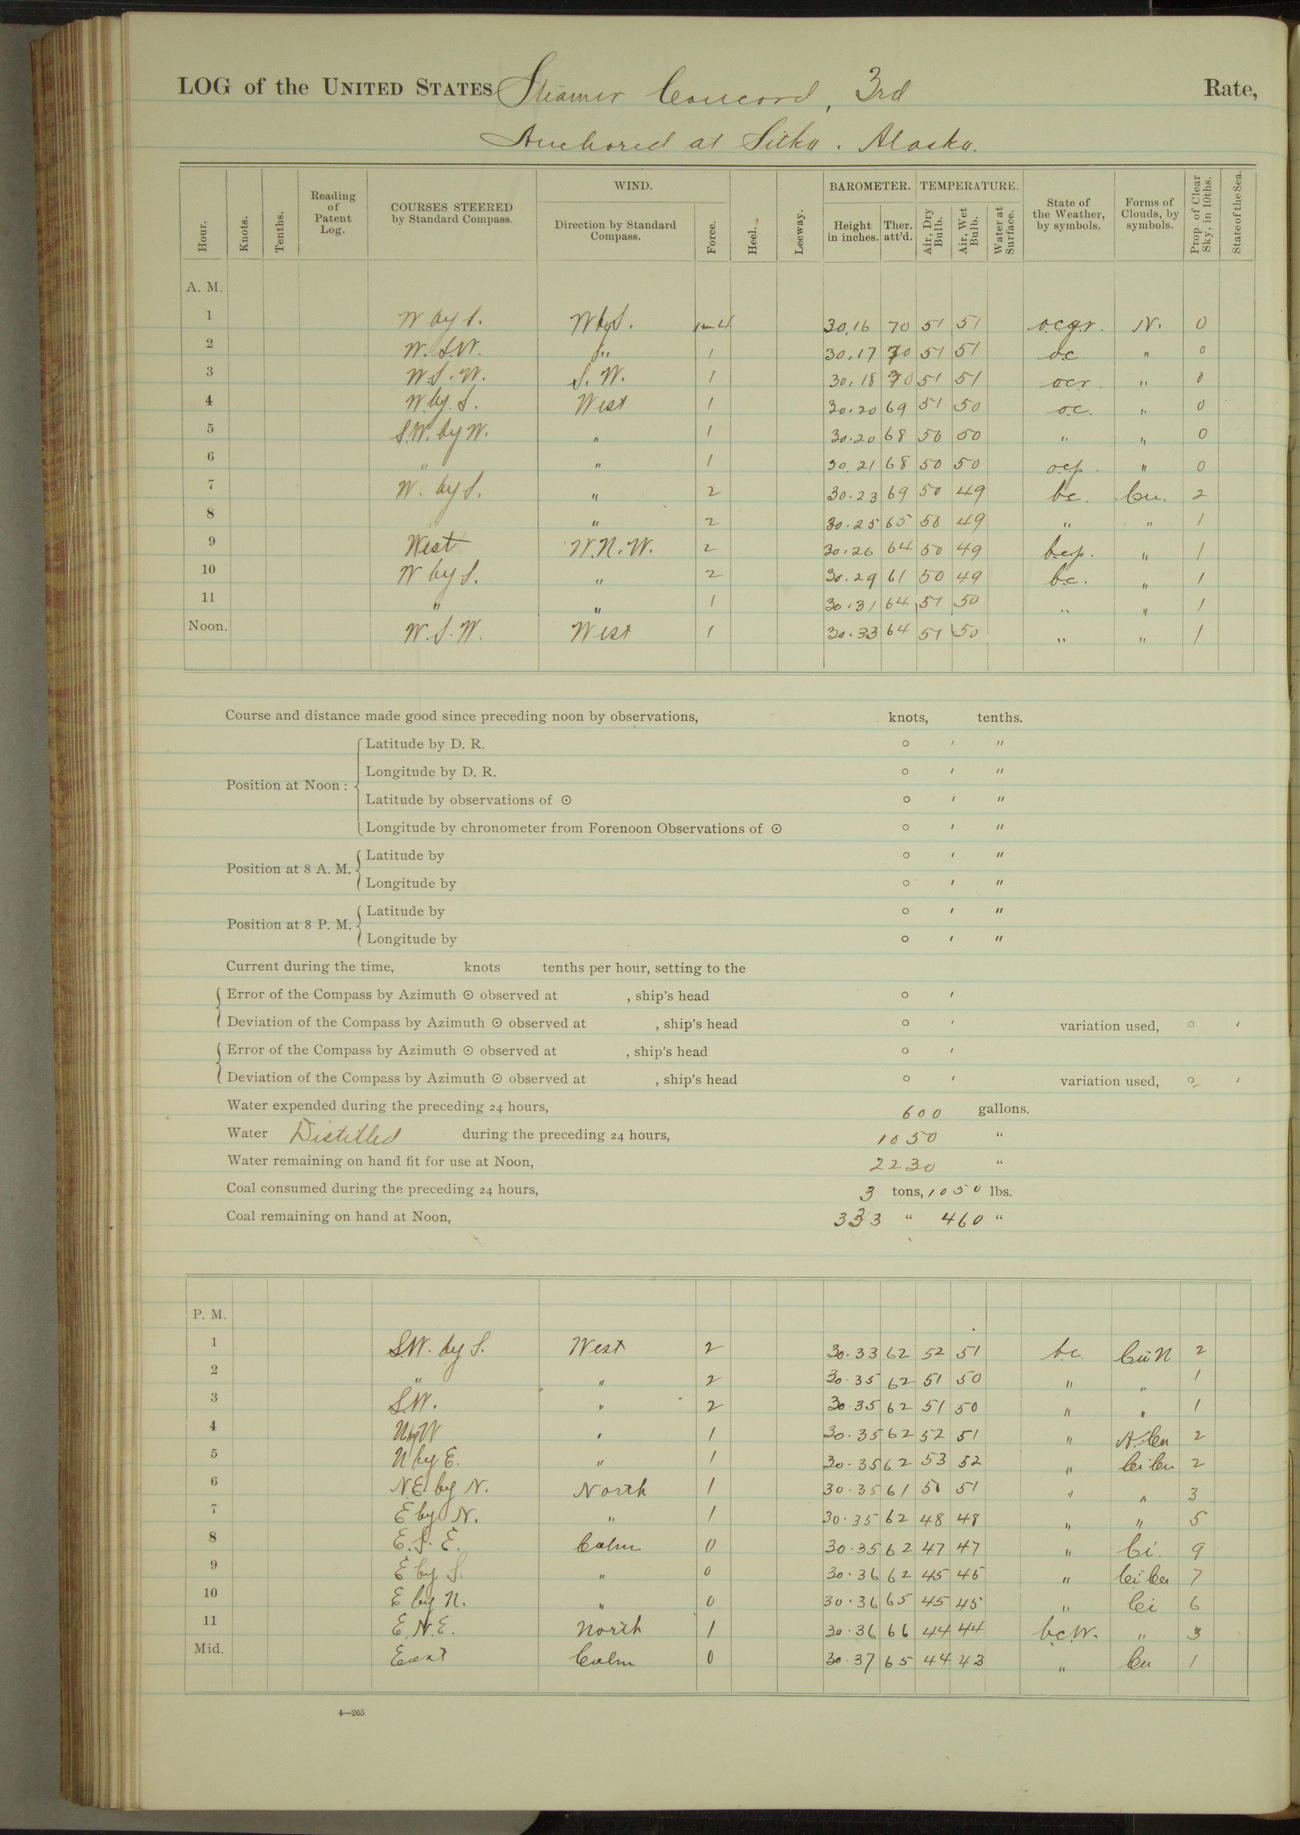 LOG of the UNITED STATES Steamer Concord, 3rd Rate,
Anchored at Sitka. Alaska.
Hour. Knots. Tenths. Reading of Patent Log. COURSES STEERED by Standard Compass. WIND. Direction by Standard Compass. Force. Heel. Leeway. BAROMETER. Height in inches. Ther. att'd. TEMPERATURE. Air, Dry Bulb. Air, Wet Bulb. Water at Surface. State of the Weather, by symbols. Forms of Clouds, by symbols. Prop. of Clear Sky, in 10ths. State of the Sea.
A. M.
1 W by S. W by S. 1-4 30.16 70 51 51 o.c.q.r. N. 0
2 W. S.W. " 1 30.17 70 51 51 o.c. " 0
3 W.S.W. S. W. 1 30.18 70 51 51 ocr. " 0
4 W. by. S. West 1 30.20 69 51 50 o.c. " 0
5 S.W. by W. " 1 30.20 68 50 50 " " 0
6 " " 1 30.21 68 50 50 ocp. " 0
7 W. by S. " 2 30.23 69 50 49 bc. Cu. 2
8 " 2 30.25 65 50 49 " " 1
9 West W.N.W. 2 30.26 64 50 49 b.c.p. " 1
10 W by S. " 2 30.29 61 50 49 b.c. " 1
11 " " 1 30.31 64 51 50 " " 1
Noon. W.S.W. West 1 30.33 64 51 50 " " 1
Course and distance made good since preceding noon by observations, knots, tenths.
Position at Noon: Latitude by D. R. ° ' "
Longitude by D. R. ° ' "
Latitude by observations of ☉ ° ' "
Longitude by chronometer from Forenoon Observations of ☉ ° ' "
Position at 8 A. M. Latitude by ° ' "
Longitude by ° ' "
Position at 8 P. M. Latitude by ° ' "
Longitude by ° ' "
Current during the time, knots tenths per hour, setting to the
Error of the Compass by Azimuth ☉ observed at , ship's head ° '
Deviation of the Compass by Azimuth ☉ observed at , ship's head ° ' variation used, ° '
Error of the Compass by Azimuth ☉ observed at , ship's head ° '
Deviation of the Compass by Azimuth ☉ observed at , ship's head ° ' variation used, ° '
Water expended during the preceding 24 hours, 600 gallons.
Water Distilled during the preceding 24 hours, 1050 "
Water remaining on hand fit for use at Noon, 2230 "
Coal consumed during the preceding 24 hours, 3 tons, 1050 lbs.
Coal remaining on hand at Noon, 333 " 460 "
P. M.
1 S.W. by S. West 2 30.33 62 52 51 b.c. Cu N 2
2 " " 2 30.35 62 51 50 " " 1
3 S.W. " 2 30.35 62 51 50 " " 1
4 N by W " 1 30.35 62 52 51 " A-Cu 2
5 N by E. " 1 30.35 62 53 52 " Ci Cu 2
6 NE by N. North 1 30.35 61 51 " " 3
7 E by N. " 1 30.35 62 48 48 " " 5
8 E. S. E. Calm 0 30.35 62 47 47 " Ci. 9
9 E by S. " 0 30.36 62 45 45 " Ci Cu 7
10 E by N. " 0 30.36 65 45 45 " Ci 6
11 E.N.E. North 1 30.36 66 44 44 b.c.W. " 3
Mid. East Calm 0 30.37 65 44 43 " Cu 1
4—265